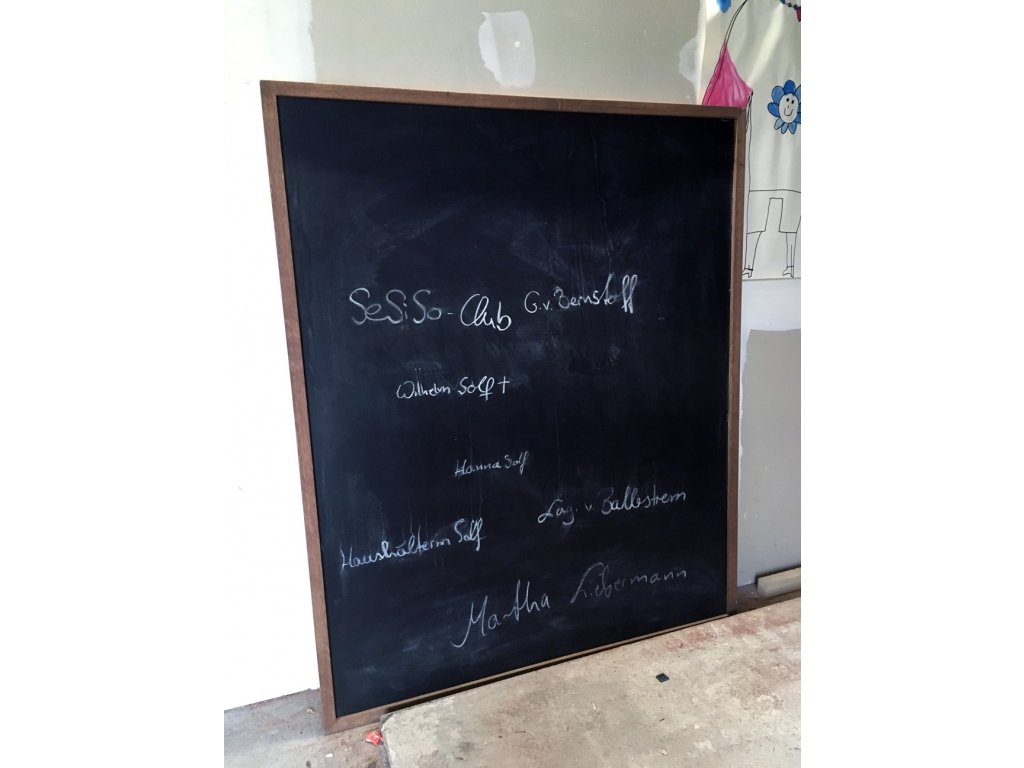 SeSiSo-Club G.v. Bernstoff
Wilhelm Solf †
Hanna Solf
Lag. v. Ballestrem
Haushälterin Solf
Martha Liebermann